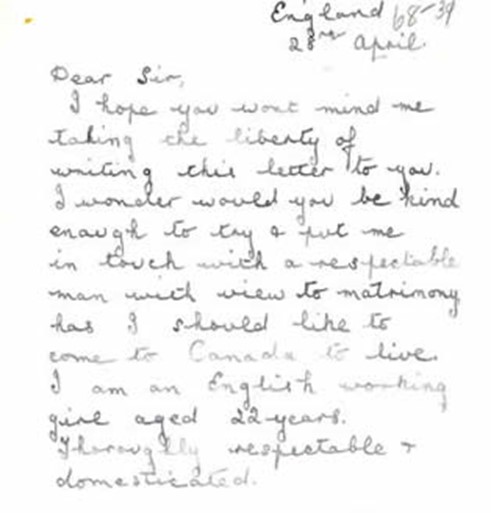 England 68-39
28th April.
Dear Sir,
I hope you wont mind me
taking the liberty of
writing this letter to you.
I wonder would you be kind
enough to try & put me
in touch with a respectable
man with view to matrimony
has I should like to
come to Canada to live.
I am an English working
girl aged 22 years.
Thoroughly respectable +
domesticated.